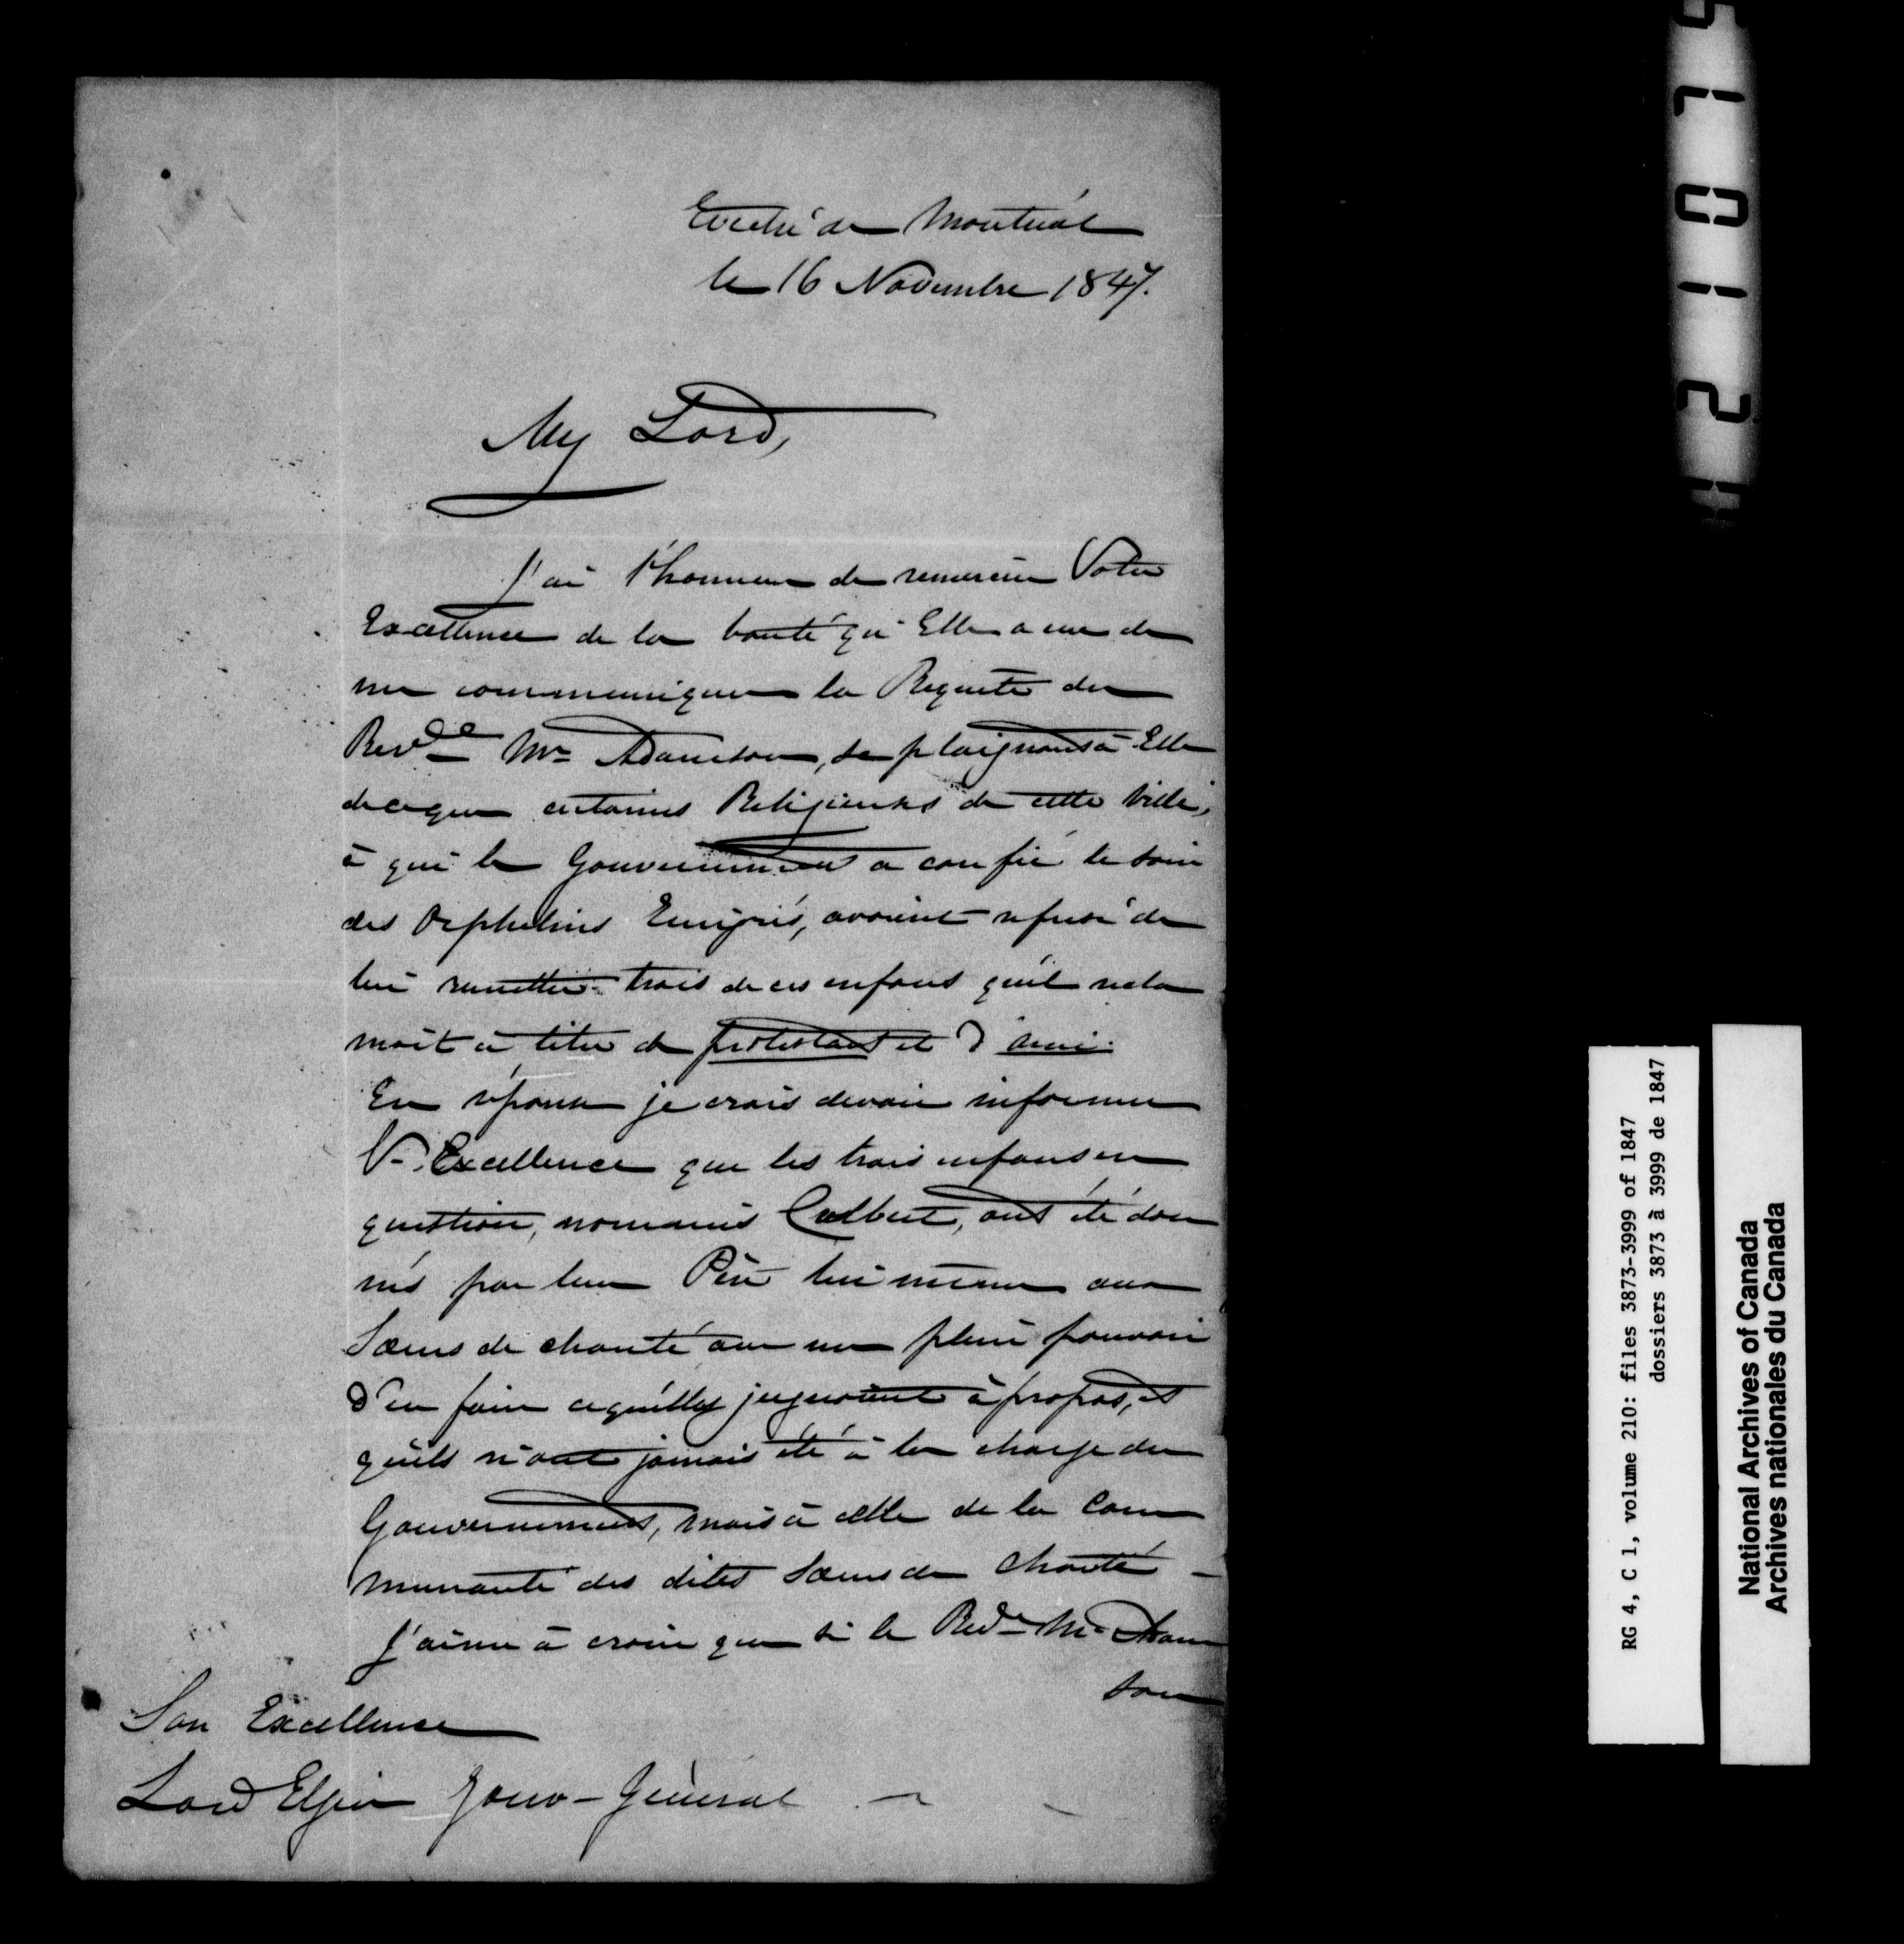 Evêché de Montréal
le 16 Novembre 1847.
My Lord,
J'ai l'honneur de remercier Votre
Excellence de la bonté qu'Elle a eue de
me communiquer la Requête du
Revde Mr Adamson, se plaignant à Elle
de ce que certaines Religieuses de cette ville,
à qui le Gouvernement a confié le soin
des Orphelins Emigrés, avaient refusé de
lui remettre trois de ces enfans qu'il récla
mait à titre de protestant et d'ami.
En réponse je crois devoir informer
V. Excellence que les trois enfans en
question, nommés Culbert, ont été don
nés par leur Père lui même aux
Sœurs de charité avec un plein pouvoir
d'en faire ce qu'elles jugeraient à propos, et
qu'ils n'ont jamais été à la charge du
Gouvernement, mais à celle de la Com
munauté des dites Sœurs de Charité -
J'aime à croire que si le Revd Mr Adam
son
Son Excellence
Lord Elgin Gouv-Général
RG 4, C 1, volume 210: files 3873-3999 of 1847
dossiers 3873 à 3999 de 1847
National Archives of Canada
Archives nationales du Canada